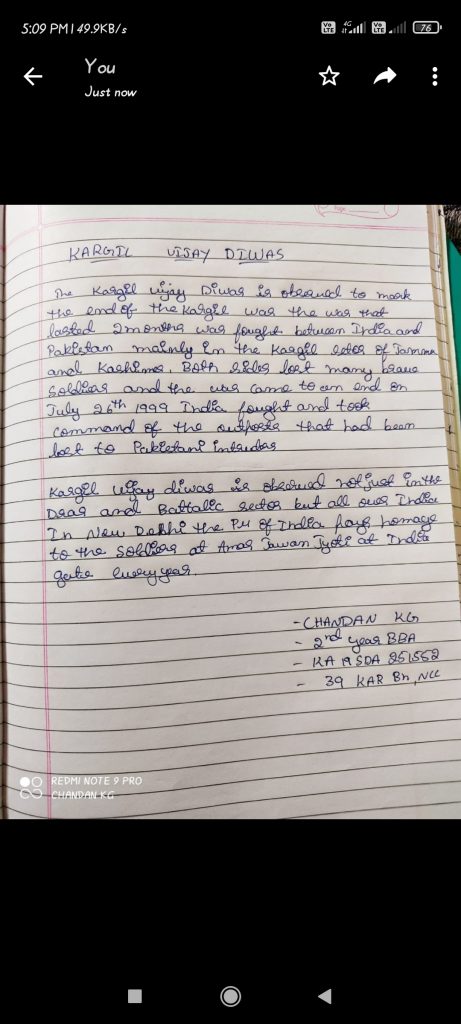 5:09 PM | 49.9KB/s
Vo LTE 4G Vo LTE 76
You
Just now
KARGIL VIJAY DIWAS
The Kargil vijay Diwas is observed to mark
the end of the Kargil was the was that
lasted 2 months was fought between India and
Pakistan mainly in the Kargil sector of Jammu
and Kashmir. Both sides lost many brave
Soldiers and the was came to an end on
July 26th 1999 India fought and took
command of the outposts that had been
lost to Pakistani intruders
Kargil vijay diwas is observed not just in the
Dras and Battalic sector but all over India
In New Delhi the PM of India pays homage
to the soldiers at Amar Jawan Jyoti at India
gate every year.
- CHANDAN KG
- 2nd year BBA
- KA 19 SDA 251552
- 39 KAR Bn, NCC
REDMI NOTE 9 PRO
CHANDAN KG